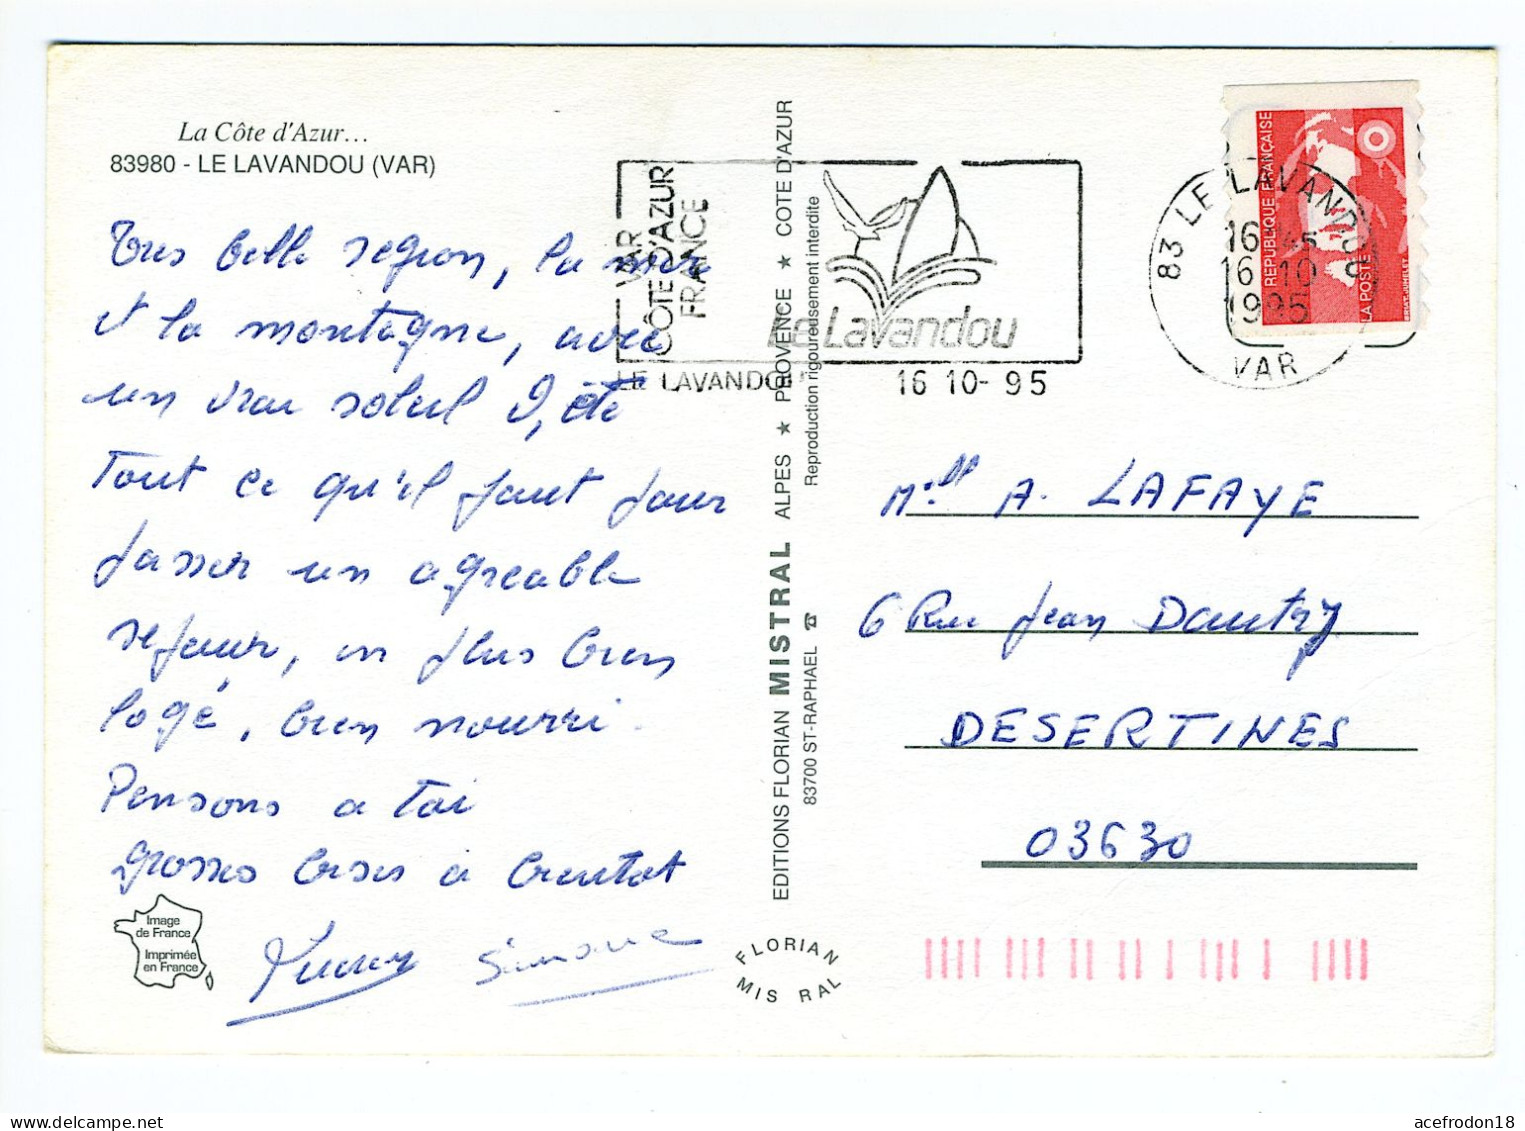 La Côte d'Azur...
83980 - LE LAVANDOU (VAR)
Tres belle region, la mer
et la montagne, avec
un vrai soleil d'été
Tout ce qu'il faut pour
passer un agreable
sejour, en plus bien
logé, bien nourri.
Pensons a toi
grosses bises à bientot
Simone
Image
de France
Imprimée
en France
VAR
CÔTE D'AZUR
FRANCE
Le Lavandou
LE LAVANDOU
16 10- 95
EDITIONS FLORIAN MISTRAL ALPES ★ PROVENCE ★ COTE D'AZUR
83700 ST-RAPHAEL ☎ Reproduction rigoureusement interdite
FLORIAN
MIS RAL
REPUBLIQUE FRANÇAISE
LA POSTE
83 LE LAVANDOU
16 H45
16-10
1995
VAR
Mell A. LAFAYE
6 Rue Jean Dautry
DESERTINES
03630
acefrodon18